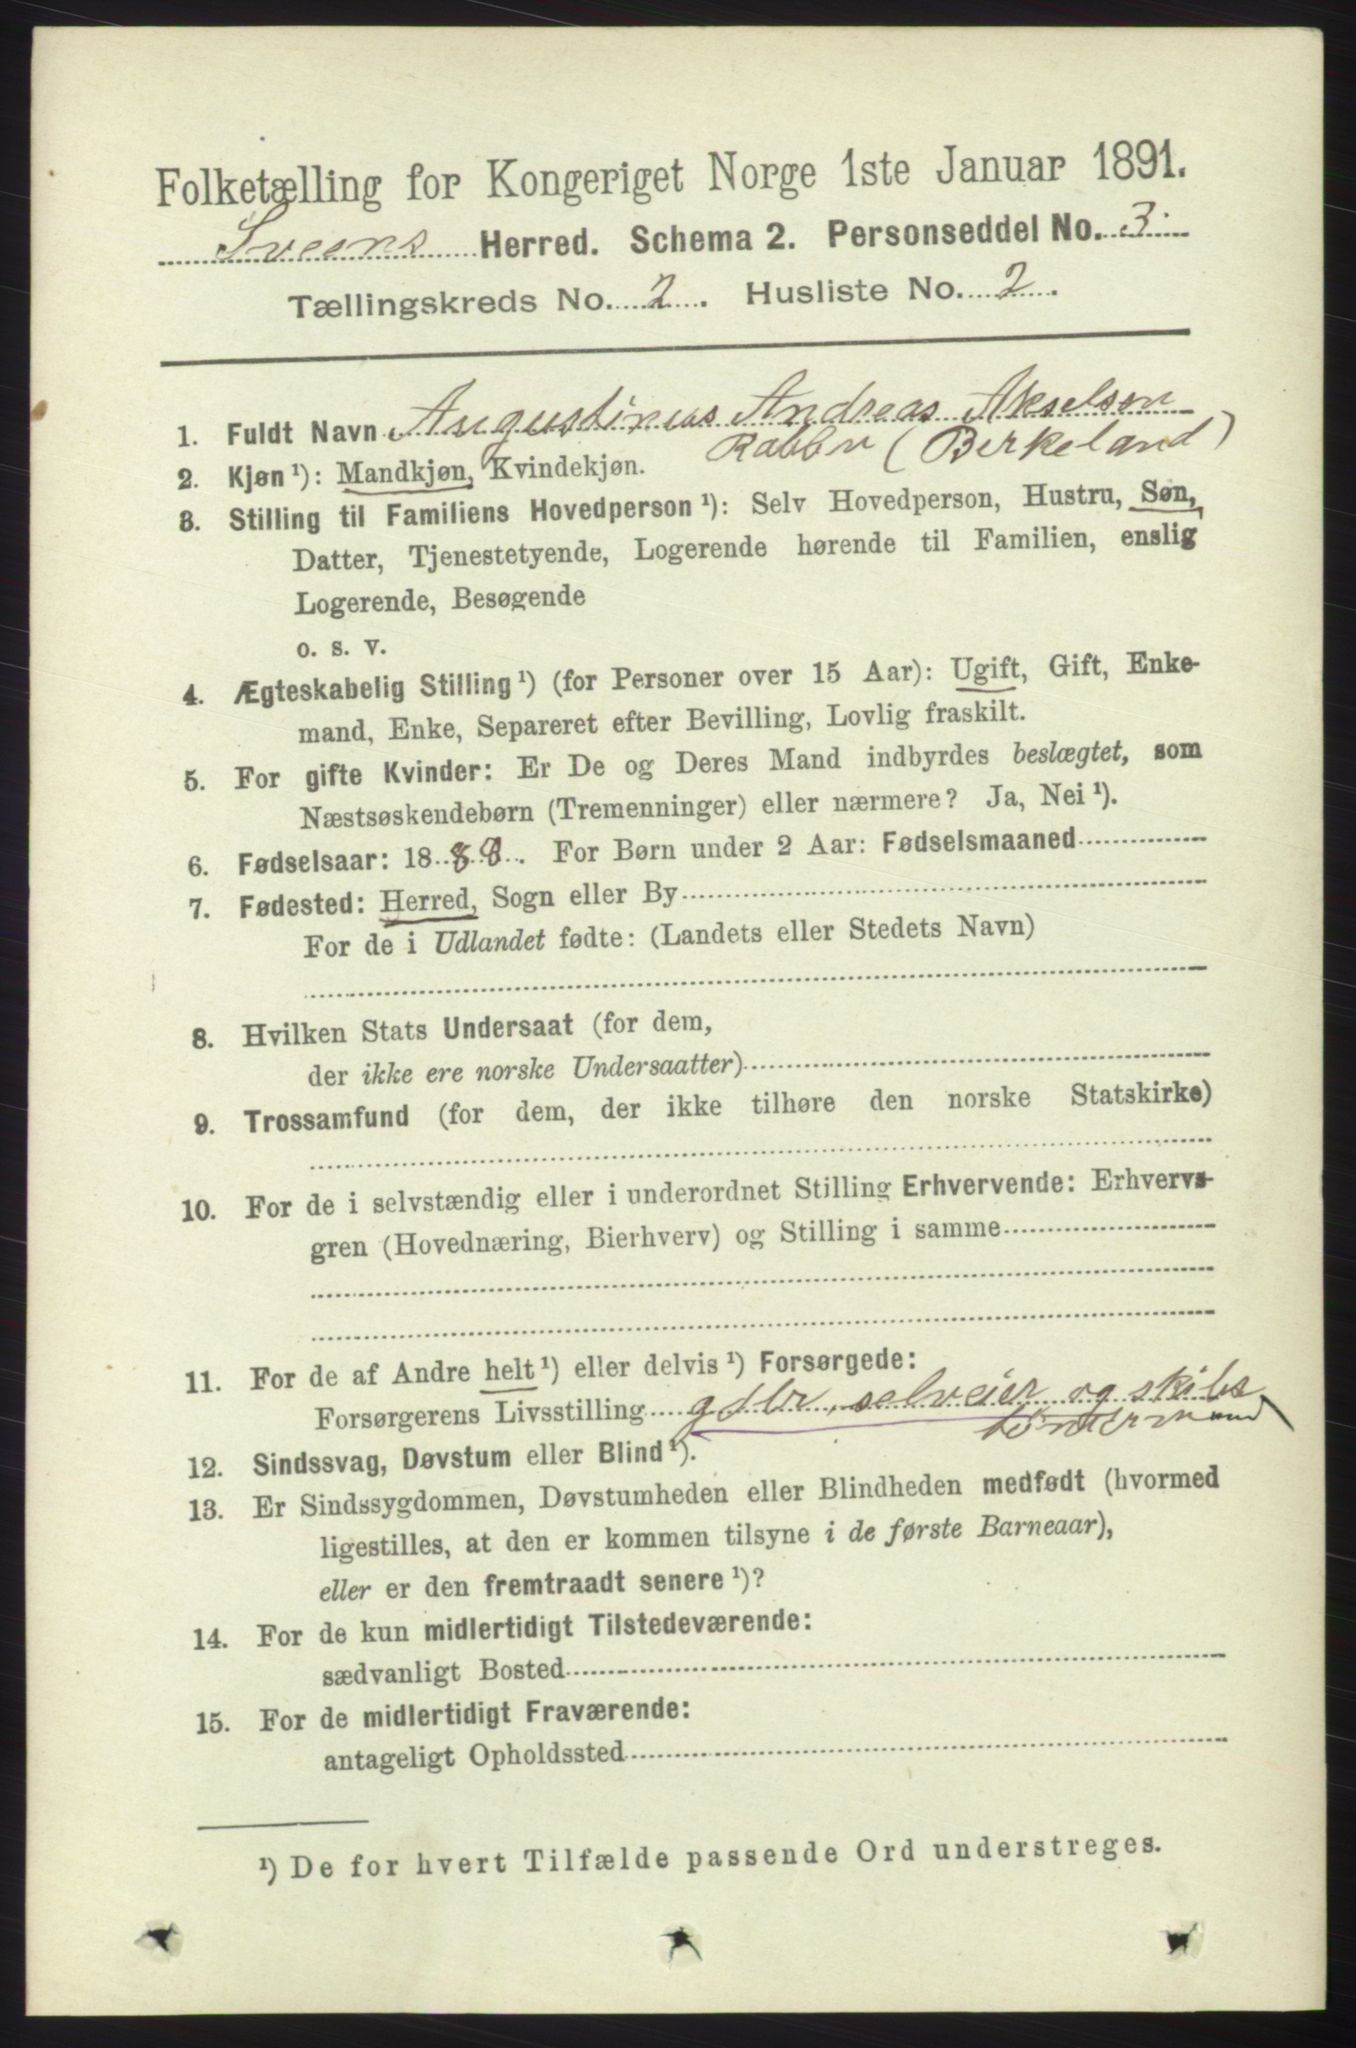 Folketælling for Kongeriget Norge 1ste Januar 1891.
Sveens Herred. Schema 2. Personseddel No. 3.
Tællingskreds No. 2. Husliste No. 2.
1. Fuldt Navn Augustinus Andreas Akselsen
Rabbv (Birkeland)
2. Kjøn ¹): Mandkjøn, Kvindekjøn.
3. Stilling til Familiens Hovedperson ¹): Selv Hovedperson, Hustru, Søn,
Datter, Tjenestetyende, Logerende hørende til Familien, enslig
Logerende, Besøgende
o. s. v.
4. Ægteskabelig Stilling ¹) (for Personer over 15 Aar): Ugift, Gift, Enke-
mand, Enke, Separeret efter Bevilling, Lovlig fraskilt.
5. For gifte Kvinder: Er De og Deres Mand indbyrdes beslægtet, som
Næstsøskendebørn (Tremenninger) eller nærmere? Ja, Nei ¹).
6. Fødselsaar: 1888. For Børn under 2 Aar: Fødselsmaaned
7. Fødested: Herred, Sogn eller By
For de i Udlandet fødte: (Landets eller Stedets Navn)
8. Hvilken Stats Undersaat (for dem,
der ikke ere norske Undersaatter)
9. Trossamfund (for dem, der ikke tilhøre den norske Statskirke)
10. For de i selvstændig eller i underordnet Stilling Erhvervende: Erhvervs-
gren (Hovednæring, Bierhverv) og Stilling i samme
11. For de af Andre helt ¹) eller delvis ¹) Forsørgede:
Forsørgerens Livsstilling gdbr, selveier og skibs
tømmermand
12. Sindssvag, Døvstum eller Blind ¹).
13. Er Sindssygdommen, Døvstumheden eller Blindheden medfødt (hvormed
ligestilles, at den er kommen tilsyne i de første Barneaar),
eller er den fremtraadt senere ¹)?
14. For de kun midlertidigt Tilstedeværende:
sædvanligt Bosted
15. For de midlertidigt Fraværende:
antageligt Opholdssted
¹) De for hvert Tilfælde passende Ord understreges.